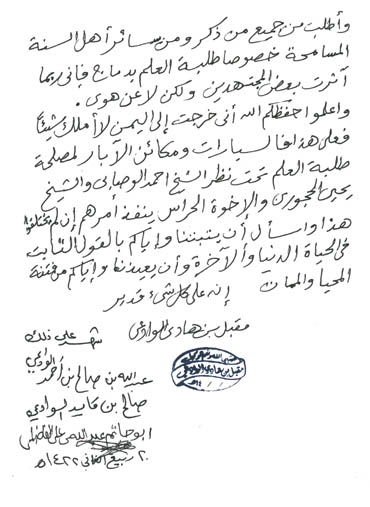 وأطلب من جميع من ذكر ومن سائر أهل السنة
المسامحة خصوصا طلبة العلم بدماج فإني ربما
آثرت بعض المجتهدين ولكن لا عن هوى .
واعلموا حفظكم الله أني خرجت إلى اليمن لا أملك شيئاً
فعلى هذا فالسيارات ومكائن الآبار لمصلحة
طلبة العلم تحت نظر الشيخ احمد الوصابي والشيخ
يحيى الحجوري والإخوة الحراس ينفذ أمرهم إن لم يختلفوا
هذا وأسأل أن يثبتنا وإياكم بالقول الثابت
في الحياة الدنيا والآخرة وأن يعيذنا وإياكم من فتنة
المحيا والممات إنه على كل شيء قدير
مقبل بن هادي الوادعي
شهد على ذلك
عبد الله بن صالح بن أحمد الوادعي
صالح بن قايد الوادعي
ابو حاتم عبد الله علي الفاضلي
٢٠ ربيع الثاني ١٤٢٢هـ